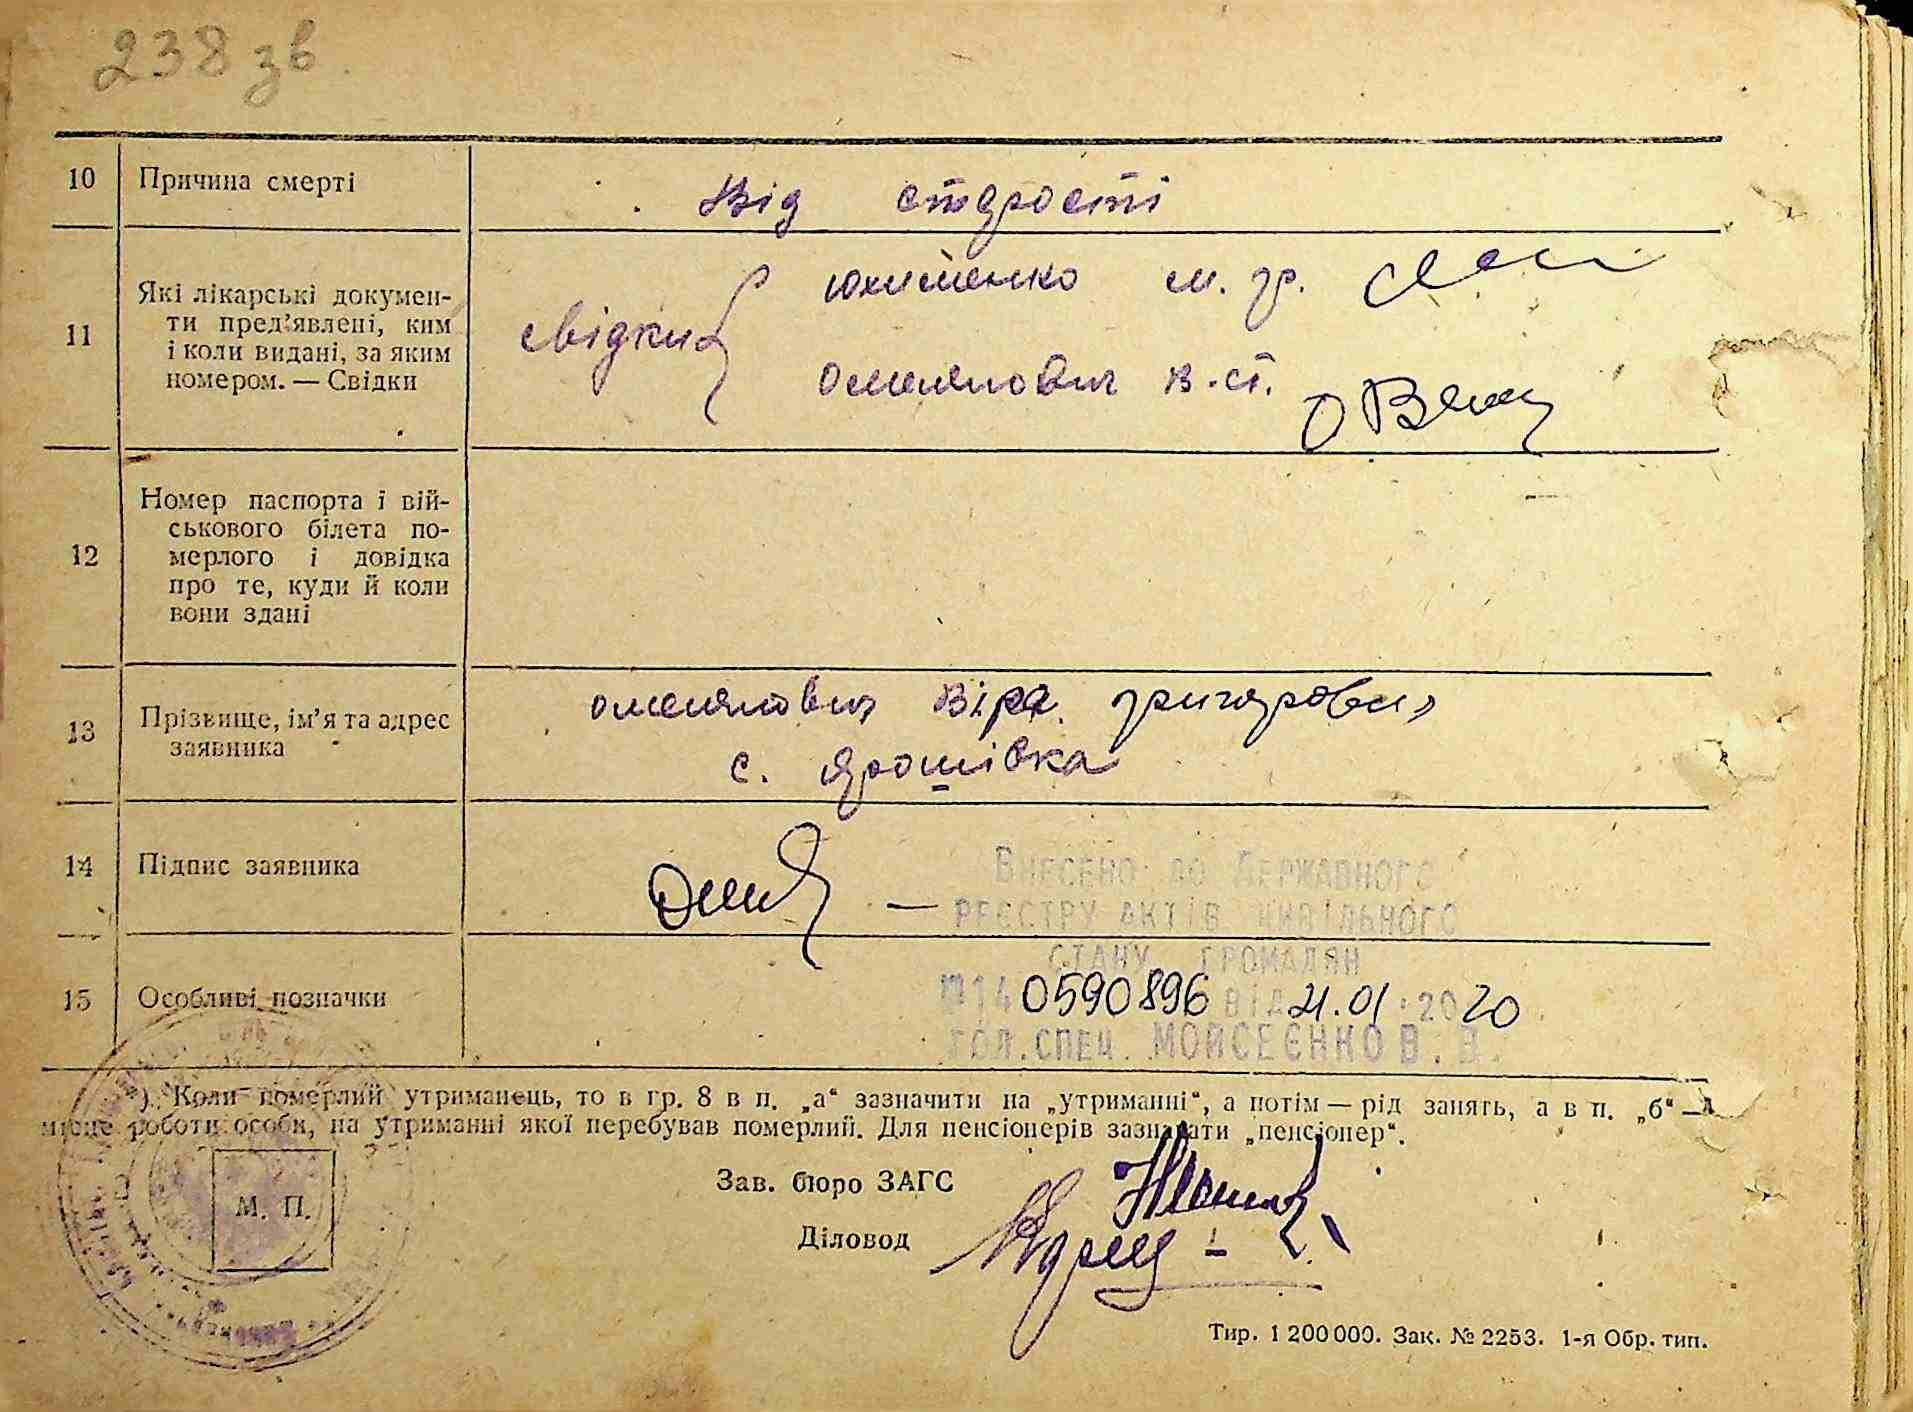 238 зв
10 Причина смерті Від старості
11 Які лікарські докумен-
ти пред'явлені, ким
і коли видані, за яким
номером. — Свідки
свідки Юхименко М. Гр.
Омелянович В. Ст.
12 Номер паспорта і вій-
ськового білета по-
мерлого і довідка
про те, куди й коли
вони здані
13 Прізвище, ім'я та адрес
заявника
Омелянович Віра Григоровн
с. Ярошівка
14 Підпис заявника
15 Особливі позначки
Внесено до Державного
реєстру актів цивільного
стану громадян
№14 0590896 від 21.01.2020
гол. спец. Мойсеєнко В. В.
). Коли померлий утриманець, то в гр. 8 в п. „а“ зазначити на „утриманні“, а потім — рід занять, а в п. „б“ —
місце роботи особи, на утриманні якої перебував померлий. Для пенсіонерів зазначати „пенсіонер“.
Зав. бюро ЗАГС
М. П.
Діловод
Тир. 1 200 000. Зак. № 2253. 1-я Обр. тип.